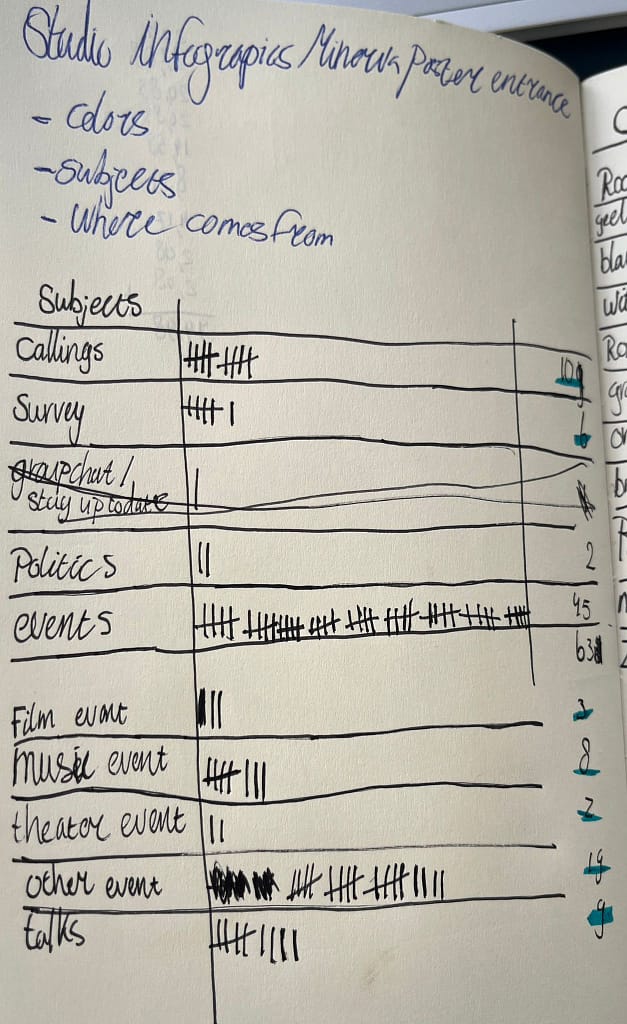 Studio infograpics Minerva Poster entrance
- Colors
- Subjects
- Where comes from
Subjects
Callings 10
Survey 6
groupchat /
stay up to date
Politics 2
events 45
63
Film event 3
music event 8
theater event 2
other event 19
talks 9
Roo
geel
bla
Ro
gr